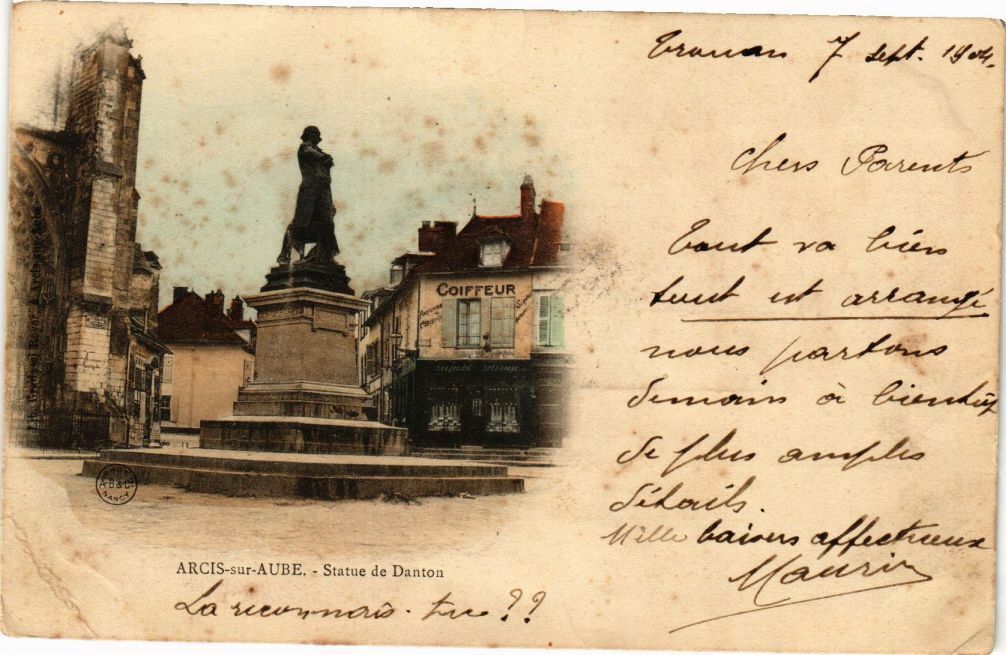 Trouan 7 sept. 1904.
Chers Parents
Tout va bien
tout est arrangé
nous partons
demain à bientôt
de plus amples
détails.
Mille baisers affectueux
Maurin
COIFFEUR
A.B.&Cie
NANCY
ARCIS-sur-AUBE. - Statue de Danton
La reconnais-tu ??